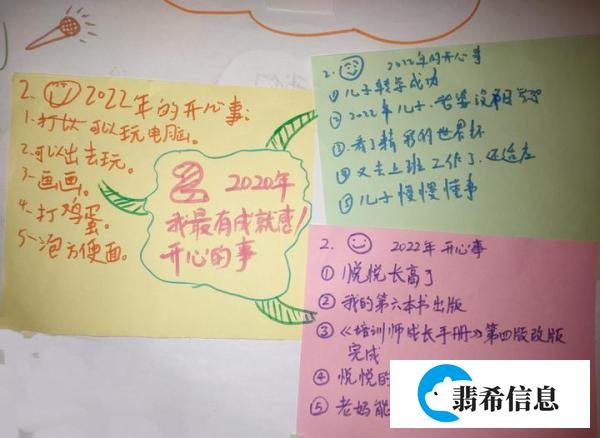 2. 2022年的开心事:
1.打以可以玩电脑。
2.可以出去玩。
3.画画。
4.打鸡蛋。
5.泡方便面。
2020年
我最有成就感/
开心的事
2. 2022年的开心事
①儿子转学成功
②2022年儿子、老婆没阳
③看了精彩的世界杯
④又去上班工作了、还适应
⑤儿子慢慢懂事
2. 2022年开心事
①悦悦长高了
②我的第六本书出版
③《培训师成长手册》第四版改版
完成
④悦悦的
⑤老妈能
翡希信息